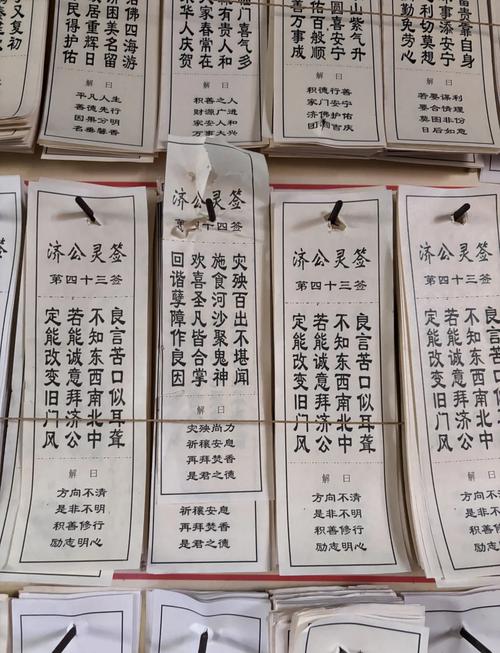 又复初
佛四海游
困美名留
居重辉日
民得护佑
解曰
平凡人生
善德先行
因果分明
名垂馨香
临门喜气多
有贵人和
家春常在
华人庆贺
解曰
积善之人
财源广进
家安人和
万事大兴
山紫气升
圆喜安宁
佑百般顺
善万事成
解曰
积德行善
家门安宁
济佛护佑
团吉庆
贵靠自身
事添安宁
利切莫想
勤免劳心
解曰
若要谋利
要合情理
莫图非份
日后如意
济公灵签
第四十三签
良言苦口似耳聋
不知东西南北中
若能诚意拜济公
定能改变旧门风
解曰
方向不清
是非不明
积善修行
励志明心
济公灵签
第四签
灾殃百出不堪闻
施食河沙聚鬼神
欢喜圣凡皆合掌
回谐孽障作良因
解曰
灾殃尚力
祈禳安息
再拜焚香
是君之德
祈禳安息
再拜焚香
是君之德
济公灵签
第四十三签
良言苦口似耳聋
不知东西南北中
若能诚意拜济公
定能改变旧门风
解曰
方向不清
是非不明
积善修行
励志明心
济公灵签
第四十三签
良言苦口似耳聋
不知东西南北中
若能诚意拜济公
定能改变旧门风
解曰
方向不清
是非不明
积善修行
励志明心